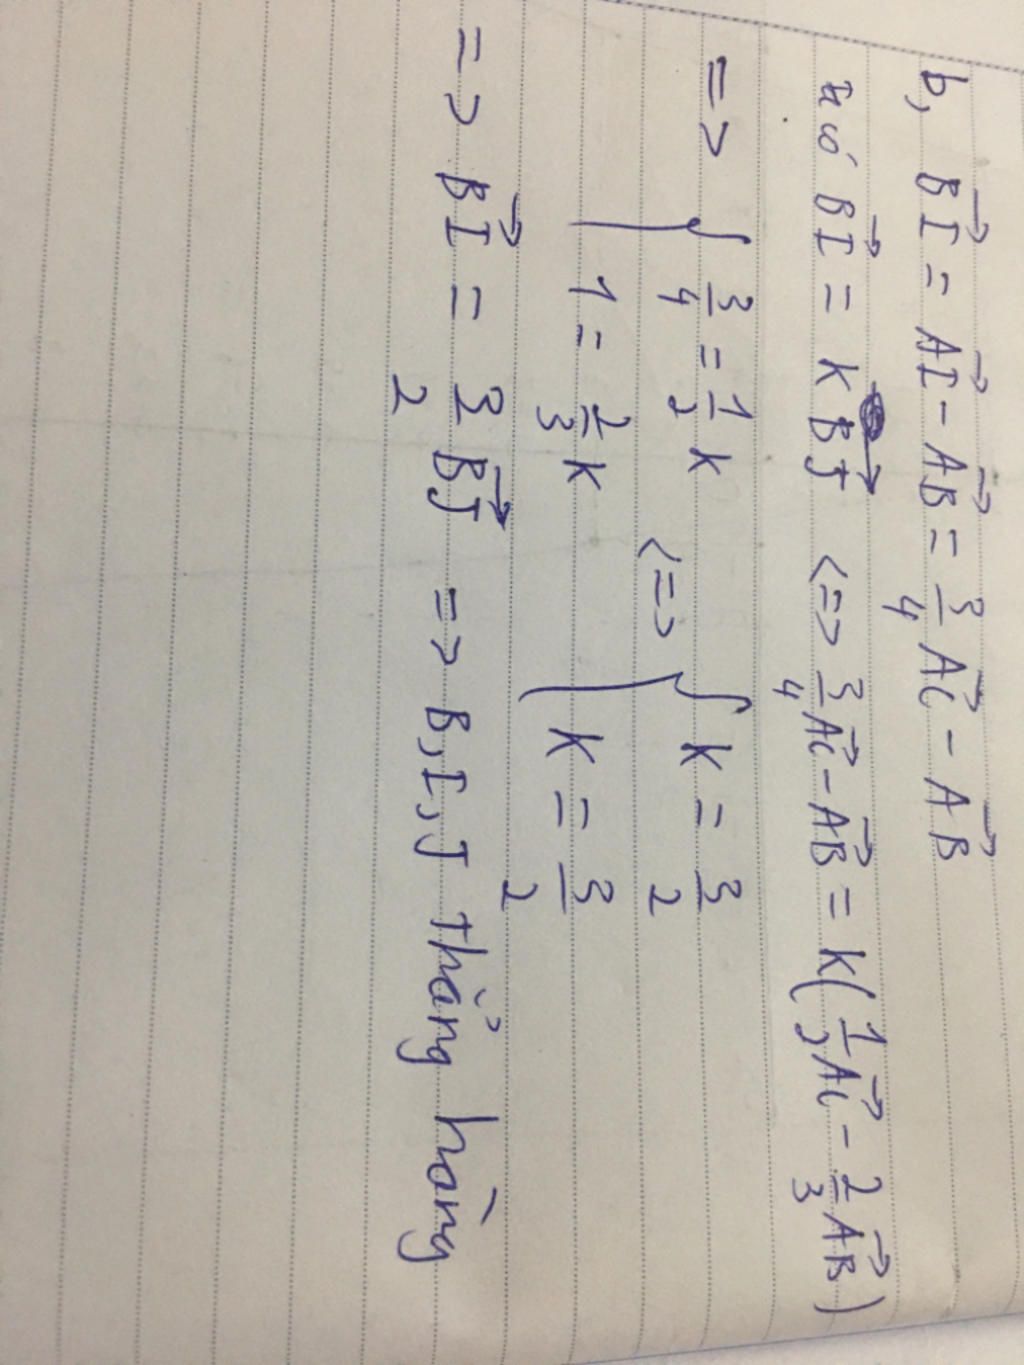 b, BI→ = AI→ - AB→ = 3/4 AC→ - AB→
có BI→ = K BJ→ <=> 3/4 AC→ - AB→ = K(1/2 AC→ - 2/3 AB→)
=> { 3/4 = 1/2 K <=> { K = 3/2
1 = 2/3 K K = 3/2
=> BI→ = 3/2 BJ→ => B, I, J thẳng hàng